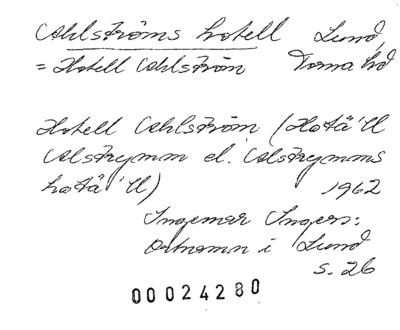 Ahlströms hotell Lund,
= Hotell Ahlström Torna hd
Hotell Ahlström (Hotä'll
Alstrymm el. Alstrymms
hotä'll) 1962
Ingemar Ingers:
Ortnamn i Lund
s. 26
00024280